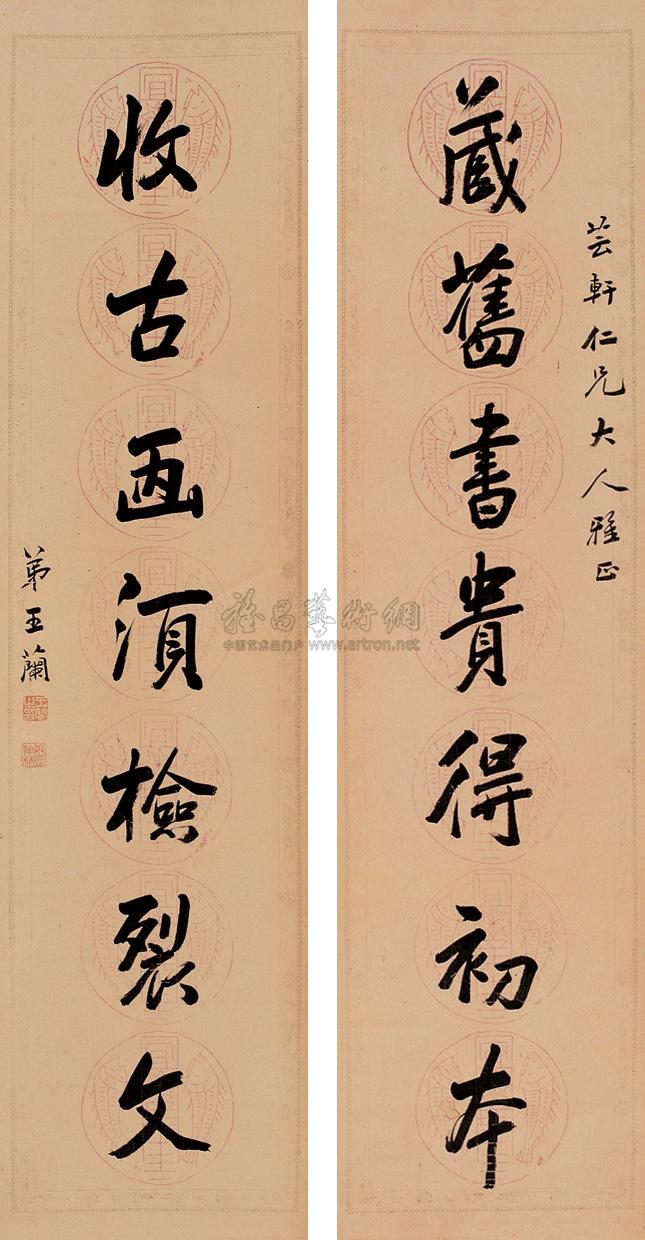 芸軒仁兄大人雅正
藏舊書貴得初本
收古画須檢裂文
弟王蘭
雅昌藝術網
中国艺术品门户 www.artron.net